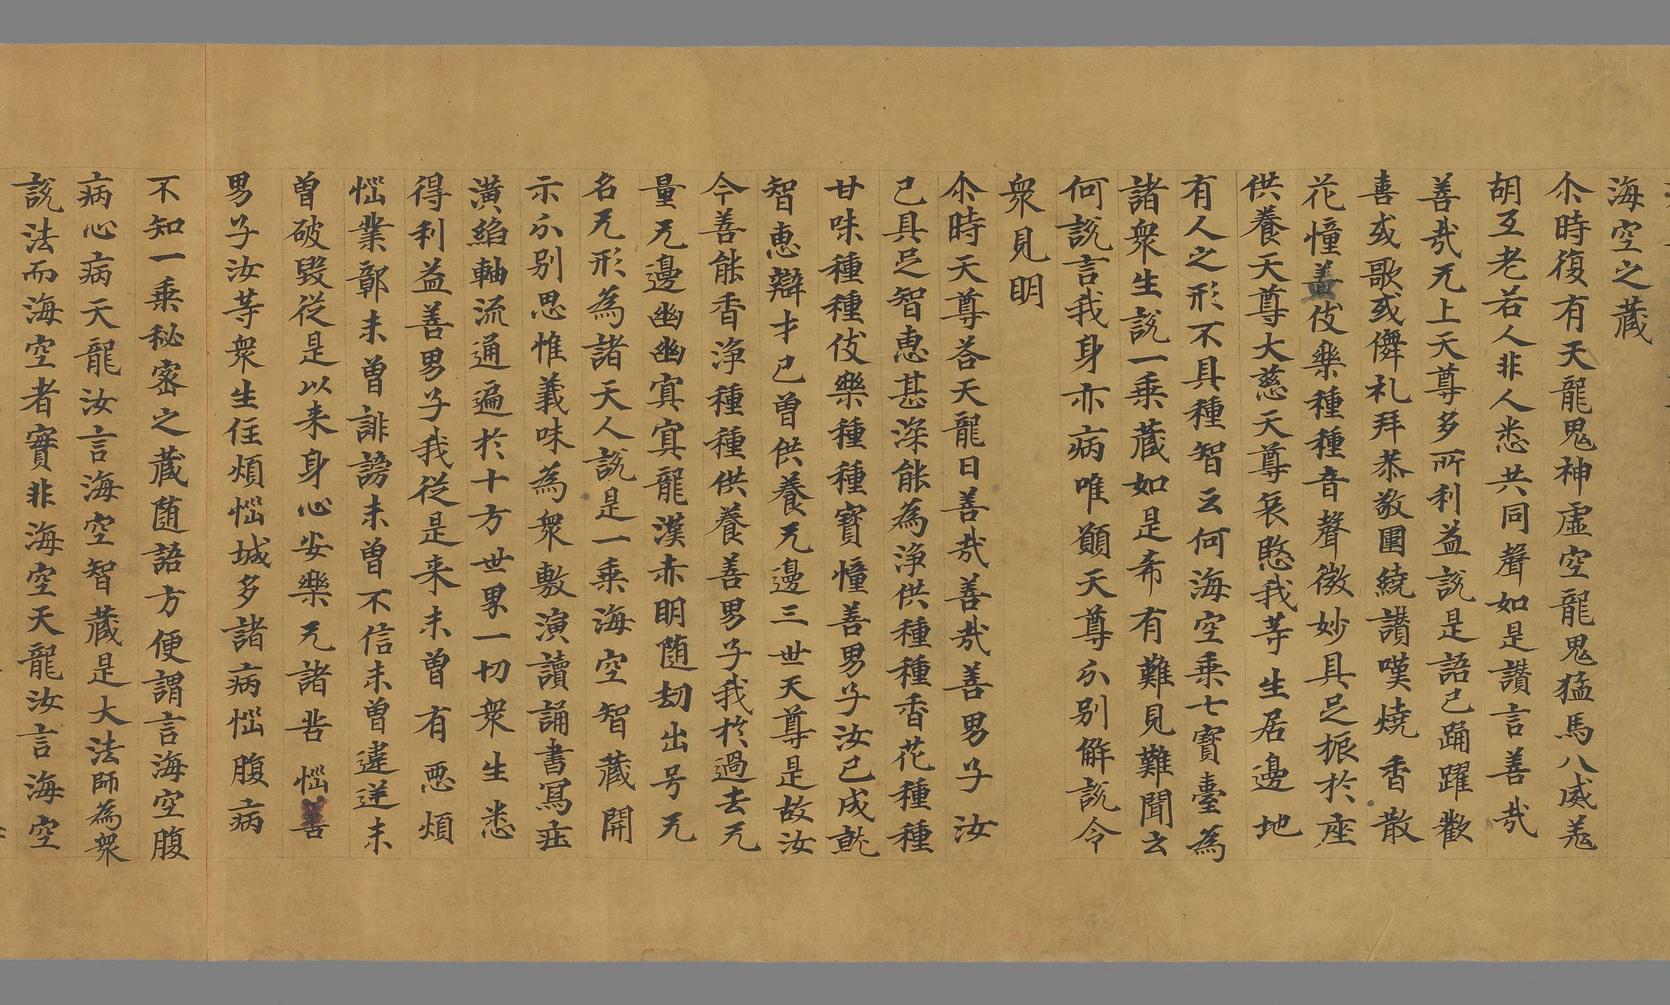 海空之藏
尒時復有天龍鬼神虛空龍鬼猛馬八威羗
胡互老若人非人悉共同聲如是讃言善㢤
善㢤无上天尊多所利益説是語已踊躍歡
喜或歌或儛礼拜恭敬圍繞讃嘆燒香散
花憧盖伎樂種種音聲微妙具足振於座
供養天尊大慈天尊哀愍我等生居邊地
有人之形不具種智云何海空乘七寳臺為
諸衆生説一乘藏如是希有難見難聞云
何説言我身亦病唯願天尊分别解説令
衆見明
尒時天尊荅天龍曰善㢤善㢤善男子汝
已具足智惠甚深能為淨供種種香花種種
甘味種種伎樂種種寳憧善男子汝已成就
智惠辯才已曾供養无邊三世天尊是故汝
今善能香淨種種供養善男子我於過去无
量无邊幽幽㝠㝠龍漢赤明随劫出号无
名无形為諸天人説是一乘海空智藏開
示分别思惟義味為衆敷演讀誦書寫㽵
潢緰軸流通遍於十方世界一切衆生悉
得利益善男子我從是来未曾有惡煩
惱業鄣未曾誹謗未曾不信未曾違逆未
曾破毀從是以来身心安樂无諸苦惱善
男子汝等衆生任煩惱城多諸病惱腹病
不知一乘秘密之藏随語方便謂言海空腹
病心病天龍汝言海空智藏是大法師為衆
説法而海空者實非海空天龍汝言海空